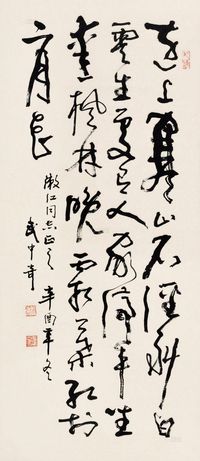 遠上寒山石徑斜白
雲生處有人家停車坐
愛楓林晚霜葉紅於
二月花
仁同志正之 辛酉年冬
武中奇